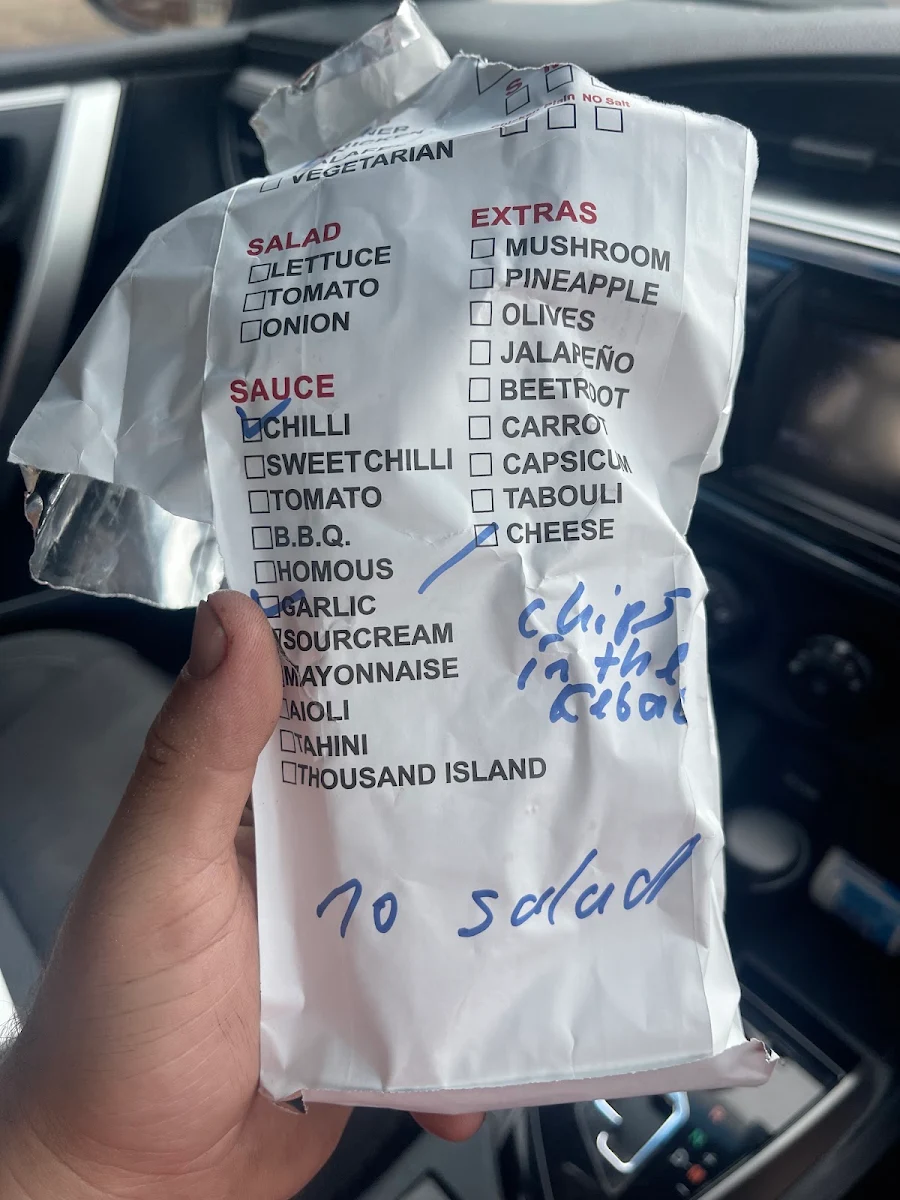 NO Salt
VEGETARIAN
SALAD
LETTUCE
TOMATO
ONION
SAUCE
CHILLI
SWEET CHILLI
TOMATO
B.B.Q.
HOMOUS
GARLIC
SOURCREAM
MAYONNAISE
AIOLI
TAHINI
THOUSAND ISLAND
EXTRAS
MUSHROOM
PINEAPPLE
OLIVES
JALAPEÑO
BEETROOT
CARROT
CAPSICUM
TABOULI
CHEESE
chips
in the
kebab
no salad